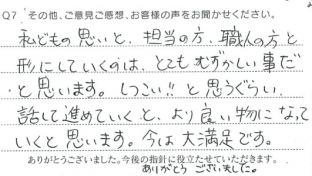 Q7 その他、ご意見ご感想、お客様の声をお聞かせください。
私どもの思いと、担当の方、職人の方と
形にしていくのは、とてもむずかしい事だ
と思います。しつこい!!と思うぐらい
話して進めていくと、より良い物になって
いくと思います。今は大満足です。
ありがとうございました。今後の指針に役立たせていただきます。
ありがとう ございました。